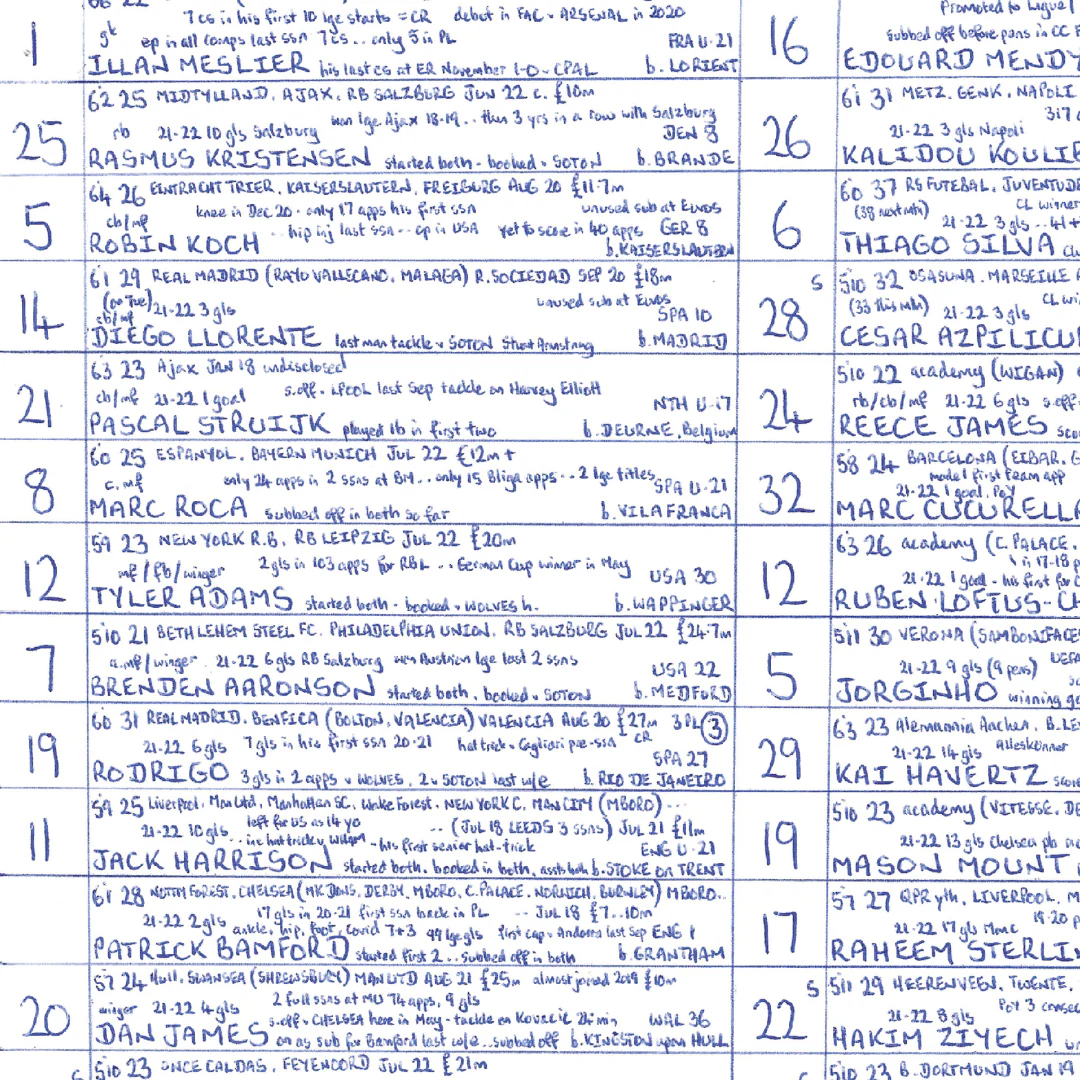 7 cs in his first 10 lge starts = CR debut in FAC v ARSENAL in 2020
1 gk ep in all comps last ssn 7cs .. only 5 in PL FRA U-21
ILLAN MESLIER his last cs at ER November 1-0 v CPAL b. LORIENT
62 25 MIDTYLLAND, AJAX, RB SALZBURG JUN 22 c. £10m
won lge Ajax 18-19 .. then 3 yrs in a row with Salzburg
25 rb 21-22 10 gls Salzburg DEN 8
RASMUS KRISTENSEN started both - booked v SOTON b. BRANDE
64 26 EINTRACHT TRIER, KAISERSLAUTERN, FREIBURG AUG 20 £11.7m
knee in Dec 20 - only 17 apps his first ssn unused sub at Euros
5 cb/mf .. hip inj last ssn .. ep in USA yet to score in 40 apps GER 8
ROBIN KOCH b. KAISERSLAUTERN
61 29 REAL MADRID (RAYO VALLECANO, MALAGA) R. SOCIEDAD SEP 20 £18m
(on Tue) 21-22 3 gls unused sub at Euros
14 cb/mf SPA 10
DIEGO LLORENTE last man tackle v SOTON Stuart Armstrong b. MADRID
63 23 Ajax JAN 18 undisclosed
21 cb/mf 21-22 1 goal s.off v LPOOL last Sep tackle on Harvey Elliott NTH U-17
PASCAL STRUIJK played lb in first two b. DEURNE, Belgium
60 25 ESPANYOL, BAYERN MUNICH JUL 22 £12m +
8 c.mf only 24 apps in 2 ssns at BM .. only 15 Bliga apps .. 2 lge titles SPA U-21
MARC ROCA subbed off in both so far b. VILAFRANCA
59 23 NEW YORK R.B, RB LEIPZIG JUL 22 £20m
12 mf/fb/winger 2 gls in 103 apps for RBL .. German Cup winner in May USA 30
TYLER ADAMS started both - booked v WOLVES h. b. WAPPINGER
510 21 BETHLEHEM STEEL FC, PHILADELPHIA UNION, RB SALZBURG JUL 22 £24.7m
7 a.mf/winger 21-22 6 gls RB Salzburg won Austrian lge last 2 ssns USA 22
BRENDEN AARONSON started both, booked v SOTON b. MEDFORD
60 31 REAL MADRID, BENFICA (BOLTON, VALENCIA) VALENCIA AUG 20 £27m CR 3 PL 3
19 21-22 6 gls 7 gls in his first ssn 20-21 hat trick v Cagliari pre-ssn SPA 27
RODRIGO 3 gls in 2 apps v WOLVES, 2 v SOTON last w/e b. RIO DE JANEIRO
59 25 Liverpool, Man Utd, Manhattan SC, Wake Forest, NEW YORK C, MAN CITY (MBORO) ...
left for US as 14 yo .. (JUL 18 LEEDS 3 ssns) JUL 21 £11m
11 21-22 10 gls .. inc hat trick v WHam - his first senior hat-trick ENG U-21
JACK HARRISON started both, booked in both, assts both b. STOKE on TRENT
61 28 NOTTM FOREST, CHELSEA (MK DONS, DERBY, MBORO, C. PALACE, NORWICH, BURNLEY) MBORO ..
21-22 2 gls 17 gls in 20-21 first ssn back in PL .. JUL 18 £7..10m
ankle, hip, foot, Covid 7+3 49 lge gls first cap v Andorra last Sep ENG 1
PATRICK BAMFORD started first 2 .. subbed off in both b. GRANTHAM
57 24 Hull, SWANSEA (SHREWSBURY) MAN UTD AUG 21 £25m almost joined 2019 £10m
20 winger 21-22 4 gls 2 full ssns at MU 74 apps, 9 gls
s.off v CHELSEA here in May - tackle on Kovacic 24 min WAL 36
DAN JAMES on as sub for Bamford last w/e .. subbed off b. KINGSTON upon HULL
S 510 23 ONCE CALDAS, FEYENOORD JUL 22 £21m
Promoted to Ligue 1
16 subbed off before pens in CC F
EDOUARD MENDY
61 31 METZ, GENK, NAPOLI
317
26 21-22 3 gls Napoli
KALIDOU KOULIB
60 37 RS FUTEBAL, JUVENTUDE
(38 next mth) CL winner
6 21-22 3 gls .. 41 +
THIAGO SILVA
S 510 32 OSASUNA, MARSEILLE
CL wi
28 (33 this mth) 21-22 3 gls
CESAR AZPILICU
510 22 academy (WIGAN)
24 rb/cb/mf 21-22 6 gls s.off
REECE JAMES
58 24 BARCELONA (EIBAR, G
made 1 first team app
32 21-22 1 goal, PoY
MARC CUCURELLA
63 26 academy (C. PALACE,
in 17-18
12 21-22 1 goal - his first for C
RUBEN LOFTUS-CH
511 30 VERONA (SAMBONIFACES
5 21-22 9 gls (9 pens)
JORGINHO winning
63 23 Alemannia Aachen, B. LE
29 21-22 14 gls Alleskönner
KAI HAVERTZ
510 23 academy (VITESSE, DE
19 21-22 13 gls Chelsea pb
MASON MOUNT
57 27 QPR yth, LIVERPOOL, M
19-20
17 21-22 17 gls Manc
RAHEEM STERLIN
S 511 29 HEERENVEEN, TWENTE,
PoY 3 consec
22 21-22 8 gls
HAKIM ZIYECH
510 23 B. DORTMUND JAN 19